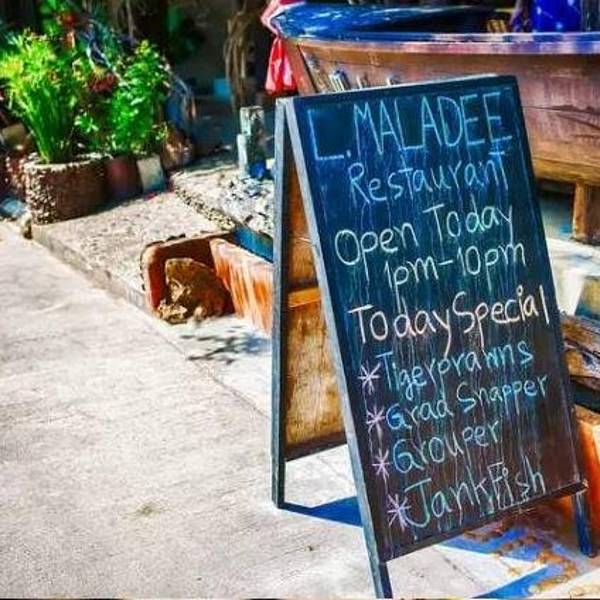 L.MALADEE
Restaurant
Open Today
1pm-10pm
Today Special
*Tigerprawns
*Grad Snapper
*Grouper
*JankFish